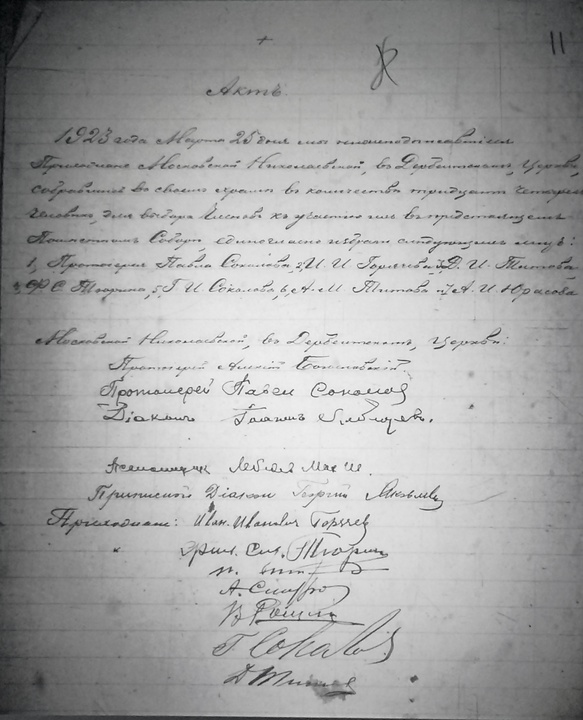 11
Актъ.
1923 года Марта 25 дня мы нижеподписавшіеся
Прихожане Московской Николаевской, въ Дербеневскомъ, Церкви,
собравшись во своемъ храмѣ въ количествѣ тридцати четырехъ
человѣкъ, для выбора Членовъ къ участію въ предстоящемъ
Помѣстномъ Соборѣ, единогласно избрали слѣдующихъ лицъ:
1, Протоіерея Павла Соколова, 2, И. И. Горячева 3, Д. И. Титова
4, Ф. С. Тюрина, 5, Г. И. Соколова, 6, А. М. Титова и 7, А. И. Юрасова
Московской Николаевской, въ Дербеневскомъ, Церкви:
Протоіерей Алексій
Протоиерей Павел Соколов
Діаконъ Іоаннъ
Псаломщик
Приписной Діакон Георгий
Прихожане: Иван Иванович Горячев
Тюрин
А.
В.
Г. Соколов
Д Титов